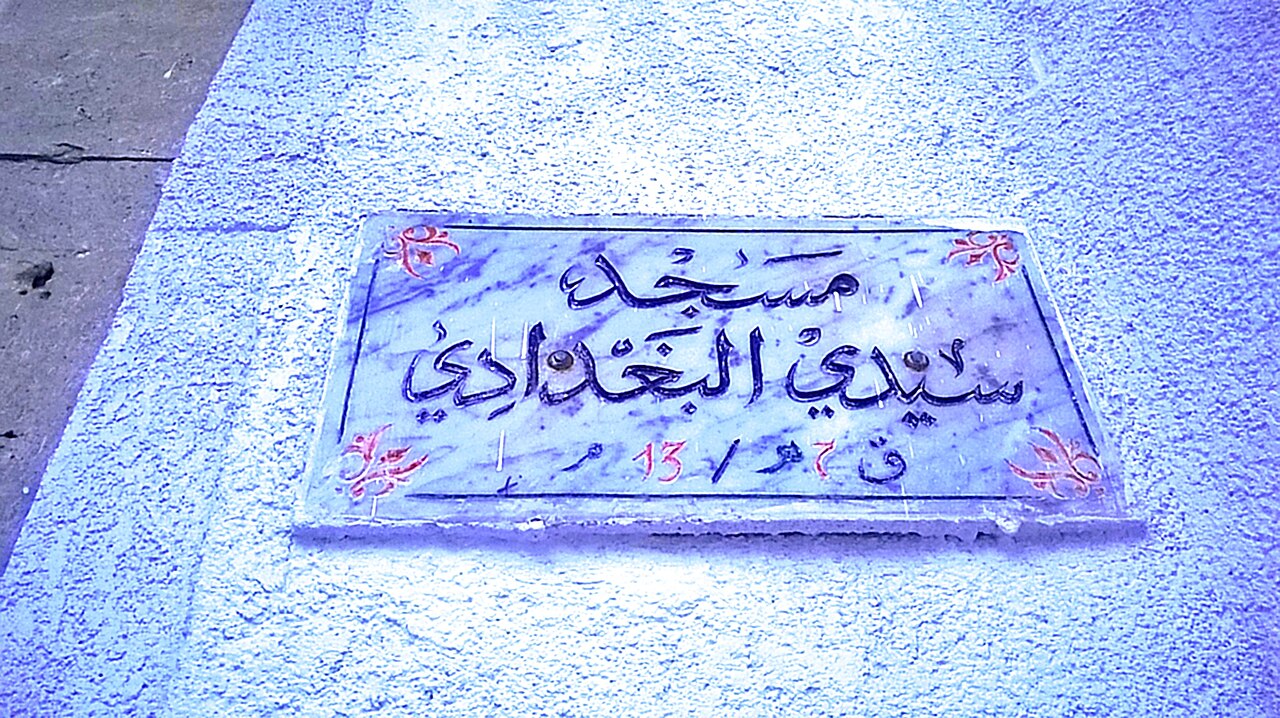 مَسْجِد
سيّدي البَغْدادِي
ق 7 هـ / 13 م